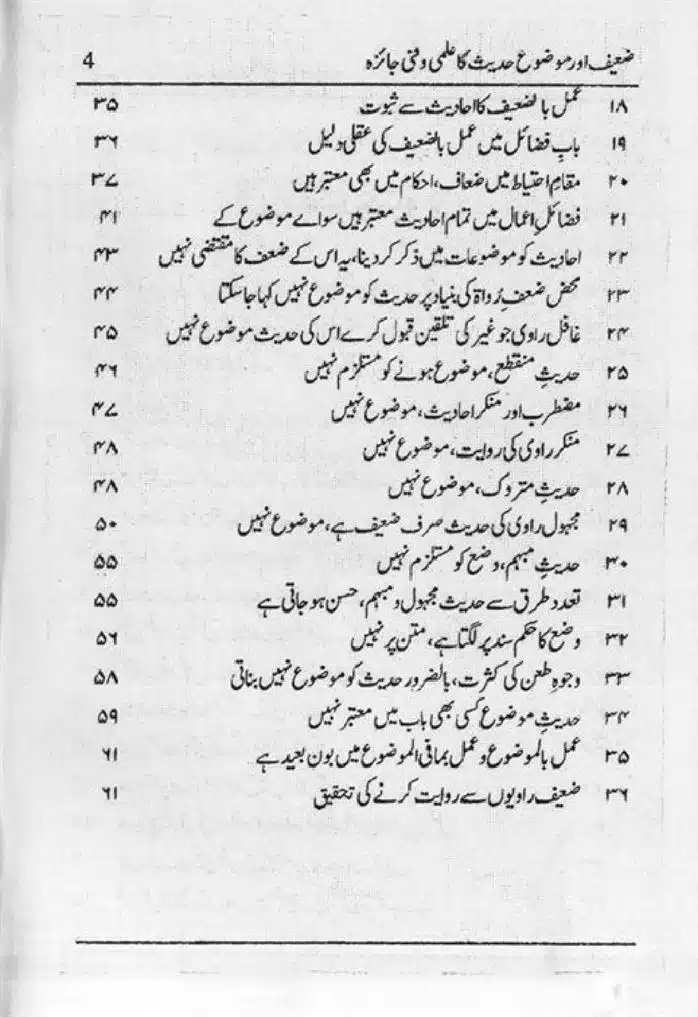 ضعیف اور موضوع حدیث کا علمی و فنی جائزہ 4
۱۸ عمل بالضعیف کا احادیث سے ثبوت ۳۵
۱۹ بابِ فضائل میں عمل بالضعیف کی عقلی دلیل ۳۶
۲۰ مقامِ احتیاط میں ضعاف، احکام میں بھی معتبر ہیں ۳۷
۲۱ فضائلِ اعمال میں تمام احادیث معتبر ہیں سواے موضوع کے ۴۱
۲۲ احادیث کو موضوعات میں ذکر کردینا، یہ اس کے ضعف کا مقتضی نہیں ۴۳
۲۳ محض ضعفِ رُواۃ کی بنیاد پر حدیث کو موضوع نہیں کہا جاسکتا ۴۴
۲۴ غافل راوی جو غیر کی تلقین قبول کرے اس کی حدیث موضوع نہیں ۴۵
۲۵ حدیثِ منقطع، موضوع ہونے کو مستلزم نہیں ۴۶
۲۶ مضطرب اور منکر احادیث، موضوع نہیں ۴۷
۲۷ منکر راوی کی روایت، موضوع نہیں ۴۸
۲۸ حدیثِ متروک، موضوع نہیں ۴۸
۲۹ مجہول راوی کی حدیث صرف ضعیف ہے، موضوع نہیں ۵۰
۳۰ حدیثِ مبہم، وضع کو مستلزم نہیں ۵۵
۳۱ تعدد طرق سے حدیث مجہول و مبہم، حسن ہوجاتی ہے ۵۵
۳۲ وضع کا حکم سند پر لگتا ہے، متن پر نہیں ۵۶
۳۳ وجوہِ طعن کی کثرت، بالضرور حدیث کو موضوع نہیں بناتی ۵۸
۳۴ حدیثِ موضوع کسی بھی باب میں معتبر نہیں ۵۹
۳۵ عمل بالموضوع و عمل بمافی الموضوع میں بون بعید ہے ۶۱
۳۶ ضعیف راویوں سے روایت کرنے کی تحقیق ۶۱